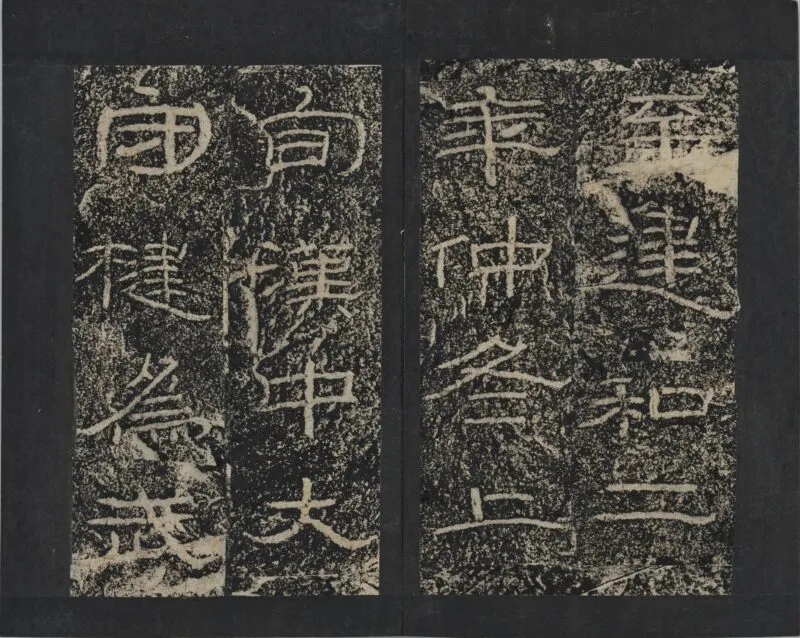 至建和二
年仲冬上
旬漢中大
守楗為武